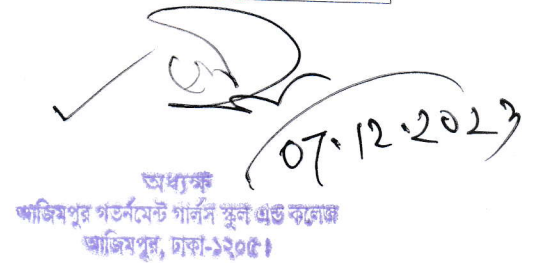 07.12.2023
অধ্যক্ষ
আজিমপুর গভর্নমেন্ট গার্লস স্কুল এন্ড কলেজ
আজিমপুর, ঢাকা-১২০৫।